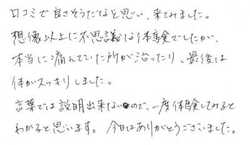 口コミで良さそうだなと思い、来てみました。
想像以上に不思議な体験でしたが、
本当に痛んでいた所が治ったり、最後は
体がスッキリしました。
言葉では説明出来ないので、一度体験してみると
わかると思います。今日はありがとうございました。